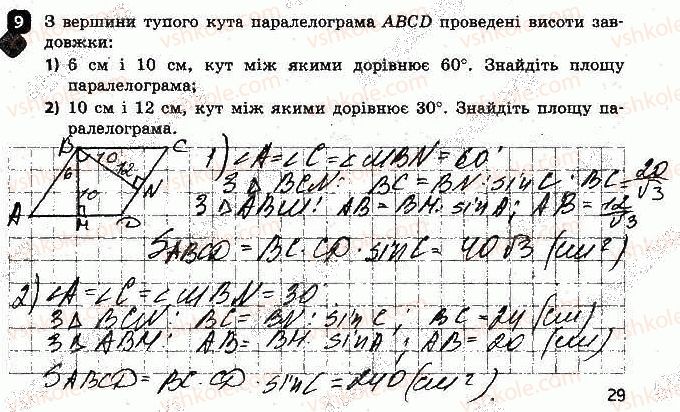 9 З вершини тупого кута паралелограма ABCD проведені висоти зав-
довжки:
1) 6 см і 10 см, кут між якими дорівнює 60°. Знайдіть площу
паралелограма;
2) 10 см і 12 см, кут між якими дорівнює 30°. Знайдіть площу па-
ралелограма.
B C
6 10 12
10 N
A M D
1) ∠A=∠C=∠MBN=60°
З Δ BCN: BC=BN:sinC; BC=20/√3
З Δ ABM: AB=BM:sinA; AB=12/√3
SABCD=BC·CD·sinC=40√3 (см²)
2) ∠A=∠C=∠MBN=30°
З Δ BCN: BC=BN:sinC; BC=24 (см)
З Δ ABM: AB=BM:sinA; AB=20 (см)
SABCD=BC·CD·sinC=240 (см²).
29